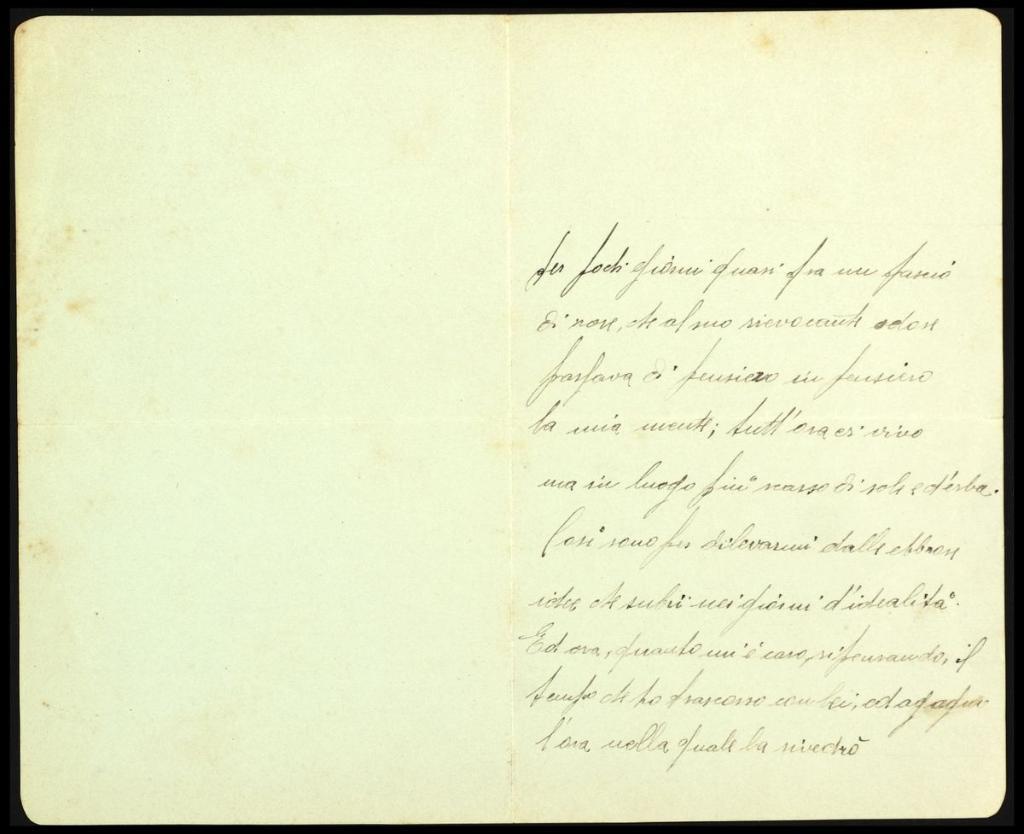 per pochi giorni quasi fra un fascio
di rose, che al suo rievocante odore
passava di pensiero in pensiero
la mia mente; tutt'ora ci vivo
ma in luogo più scarso di sole e d'erba.
Così sono per dilevarmi dalle ebbrose
idee che subii nei giorni d'idealità.
Ed ora, quanto mi è caro, ripensando, il
tempo che ho trascorso con lei, ed
l'ora nella quale la rivedrò